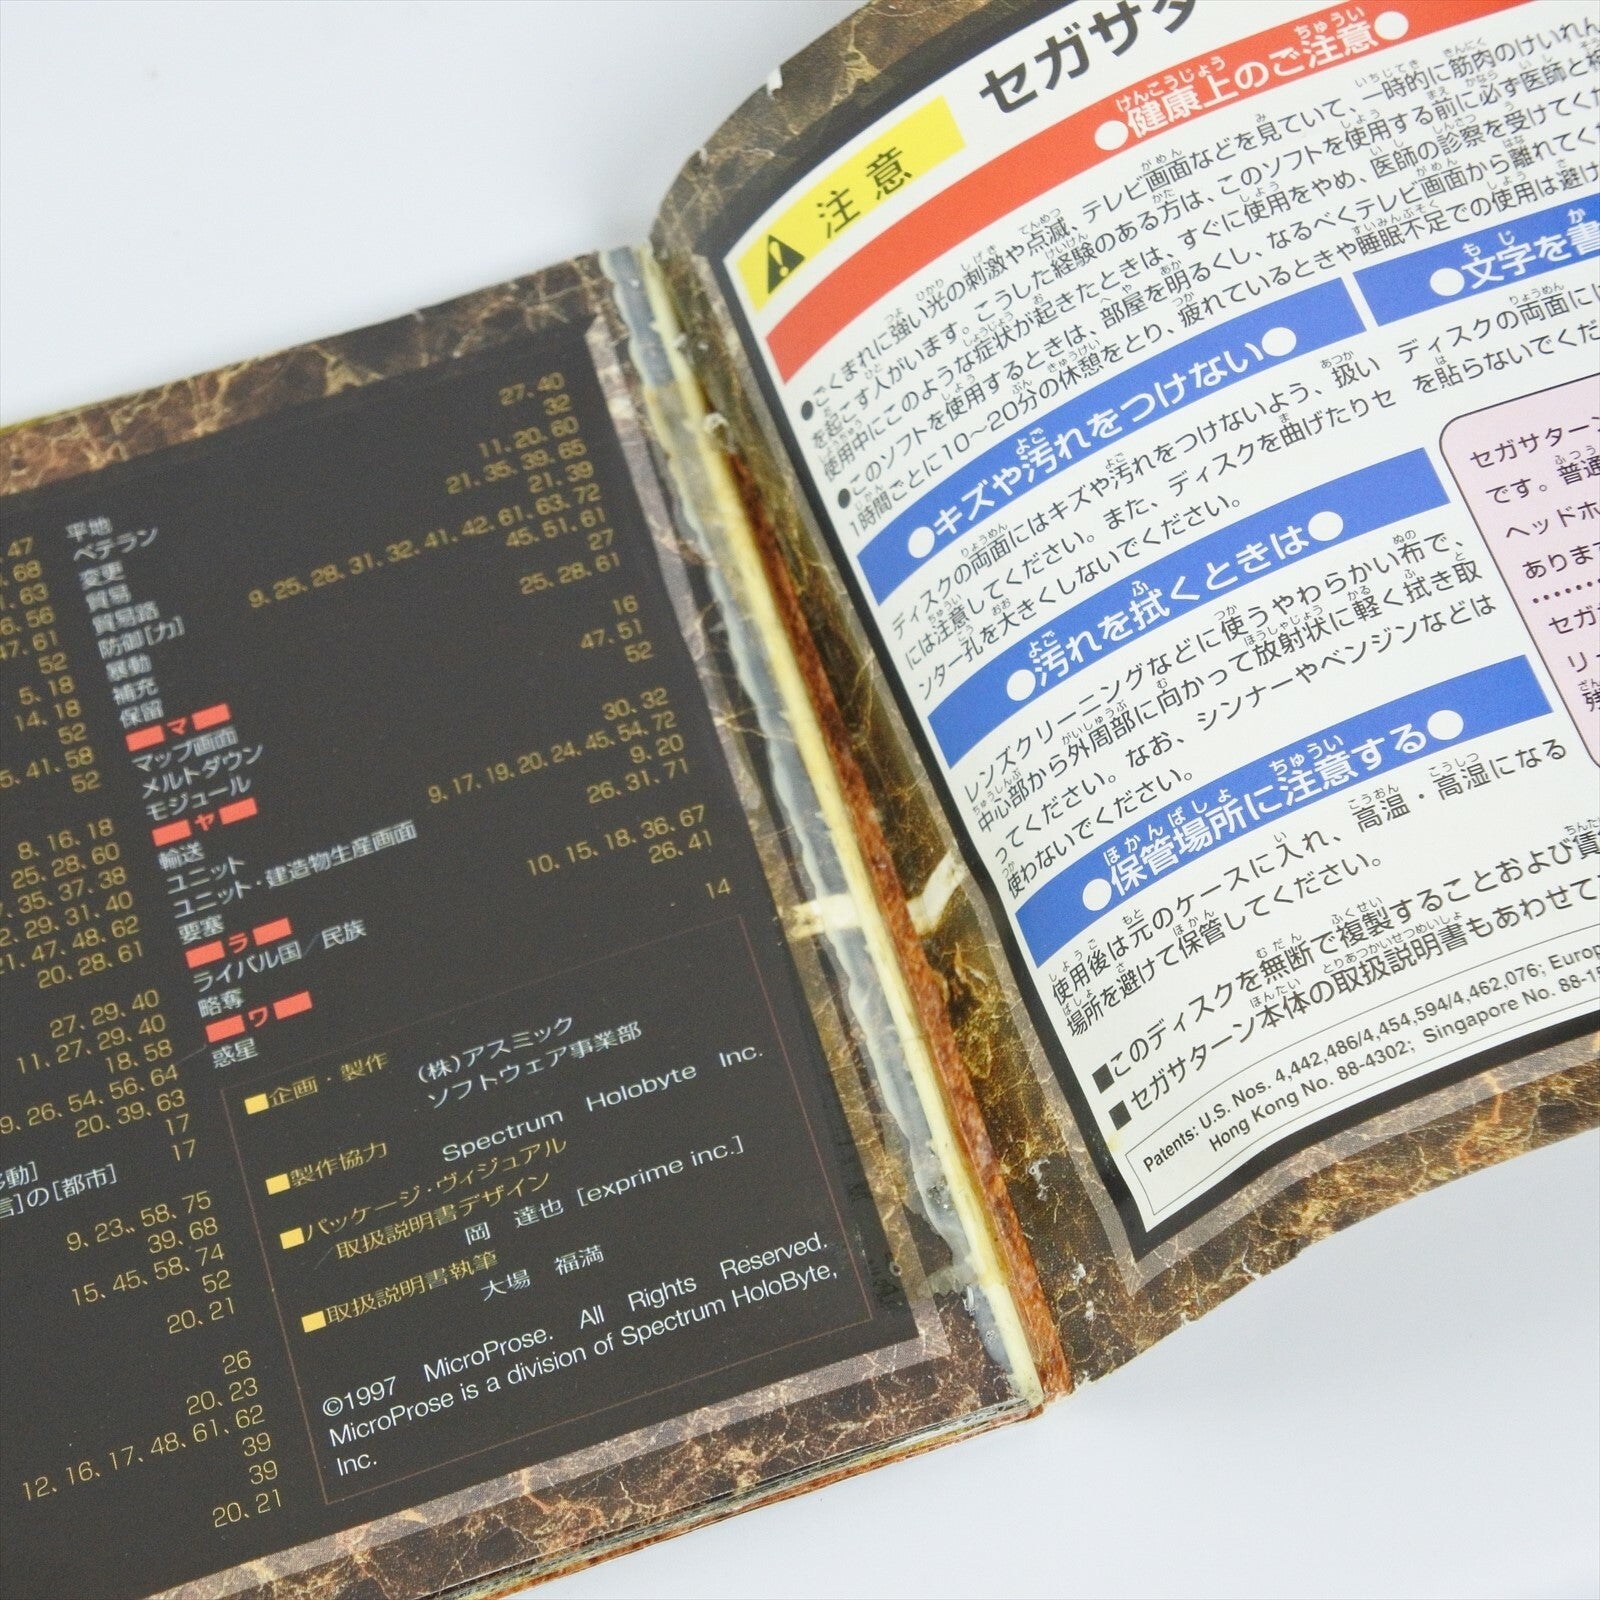 平地
ベテラン
変更
貿易
貿易路
防御[力]
暴動
補充
保留
マ
マップ画面
メルトダウン
モジュール
ヤ
輸送
ユニット
ユニット・建造物生産画面
要塞
ラ
ライバル国／民族
略奪
ワ
惑星
27、40
32
11、20、60
21、35、39、65
21、39
9、25、28、31、32、41、42、61、63、72
45、51、61
27
25、28、61
16
47、51
52
30、32
9、17、19、20、24、45、54、72
9、20
26、31、71
10、15、18、36、67
26、41
14
52
5、18
14、18
52
52
8、16、18
25、28、60
20、28、61
27、29、40
11、27、29、40
18、58
20、39、63
17
17
言]の[都市]
9、23、58、75
39、68
15、45、58、74
52
20、21
26
20、23
12、16、17、48、61、62
39
39
20、21
■企画・製作
(株)アスミック
ソフトウェア事業部
■製作協力
Spectrum Holobyte Inc.
■パッケージ・ヴィジュアル
取扱説明書デザイン
岡 達也 [exprime inc.]
■取扱説明書執筆
大場 福満
©1997 MicroProse. All Rights Reserved.
MicroProse is a division of Spectrum HoloByte,
Inc.
注意
セガサタ
●健康上のご注意●
●ごくまれに強い光の刺激や点滅、テレビ画面などを見ていて、一時的に筋肉のけいれん
を起こす人がいます。こうした経験のある方は、このソフトを使用する前に必ず医師と
使用中にこのような症状が起きたときは、すぐに使用をやめ、医師の診察を受けてくだ
●このソフトを使用するときは、部屋を明るくし、なるべくテレビ画面から離れてく
1時間ごとに10〜20分の休憩をとり、疲れているときや睡眠不足での使用は避け
●キズや汚れをつけない●
ディスクの両面にはキズや汚れをつけないよう、扱い
には注意してください。また、ディスクを曲げたりセ
ンター孔を大きくしないでください。
●文字を書
ディスクの両面には
を貼らないでくだ
●汚れを拭くときは●
レンズクリーニングなどに使うやわらかい布で、
中心部から外周部に向かって放射状に軽く拭き取
ってください。なお、シンナーやベンジンなどは
使わないでください。
●保管場所に注意する●
使用後は元のケースに入れ、高温・高湿になる
場所を避けて保管してください。
セガサターン
です。普通
ヘッドホ
あります
セガサ
リー
■このディスクを無断で複製することおよび賃
■セガサターン本体の取扱説明書もあわせて
Patents: U.S. Nos. 4,442,486/4,454,594/4,462,076; Europ
Hong Kong No. 88-4302; Singapore No. 88-15